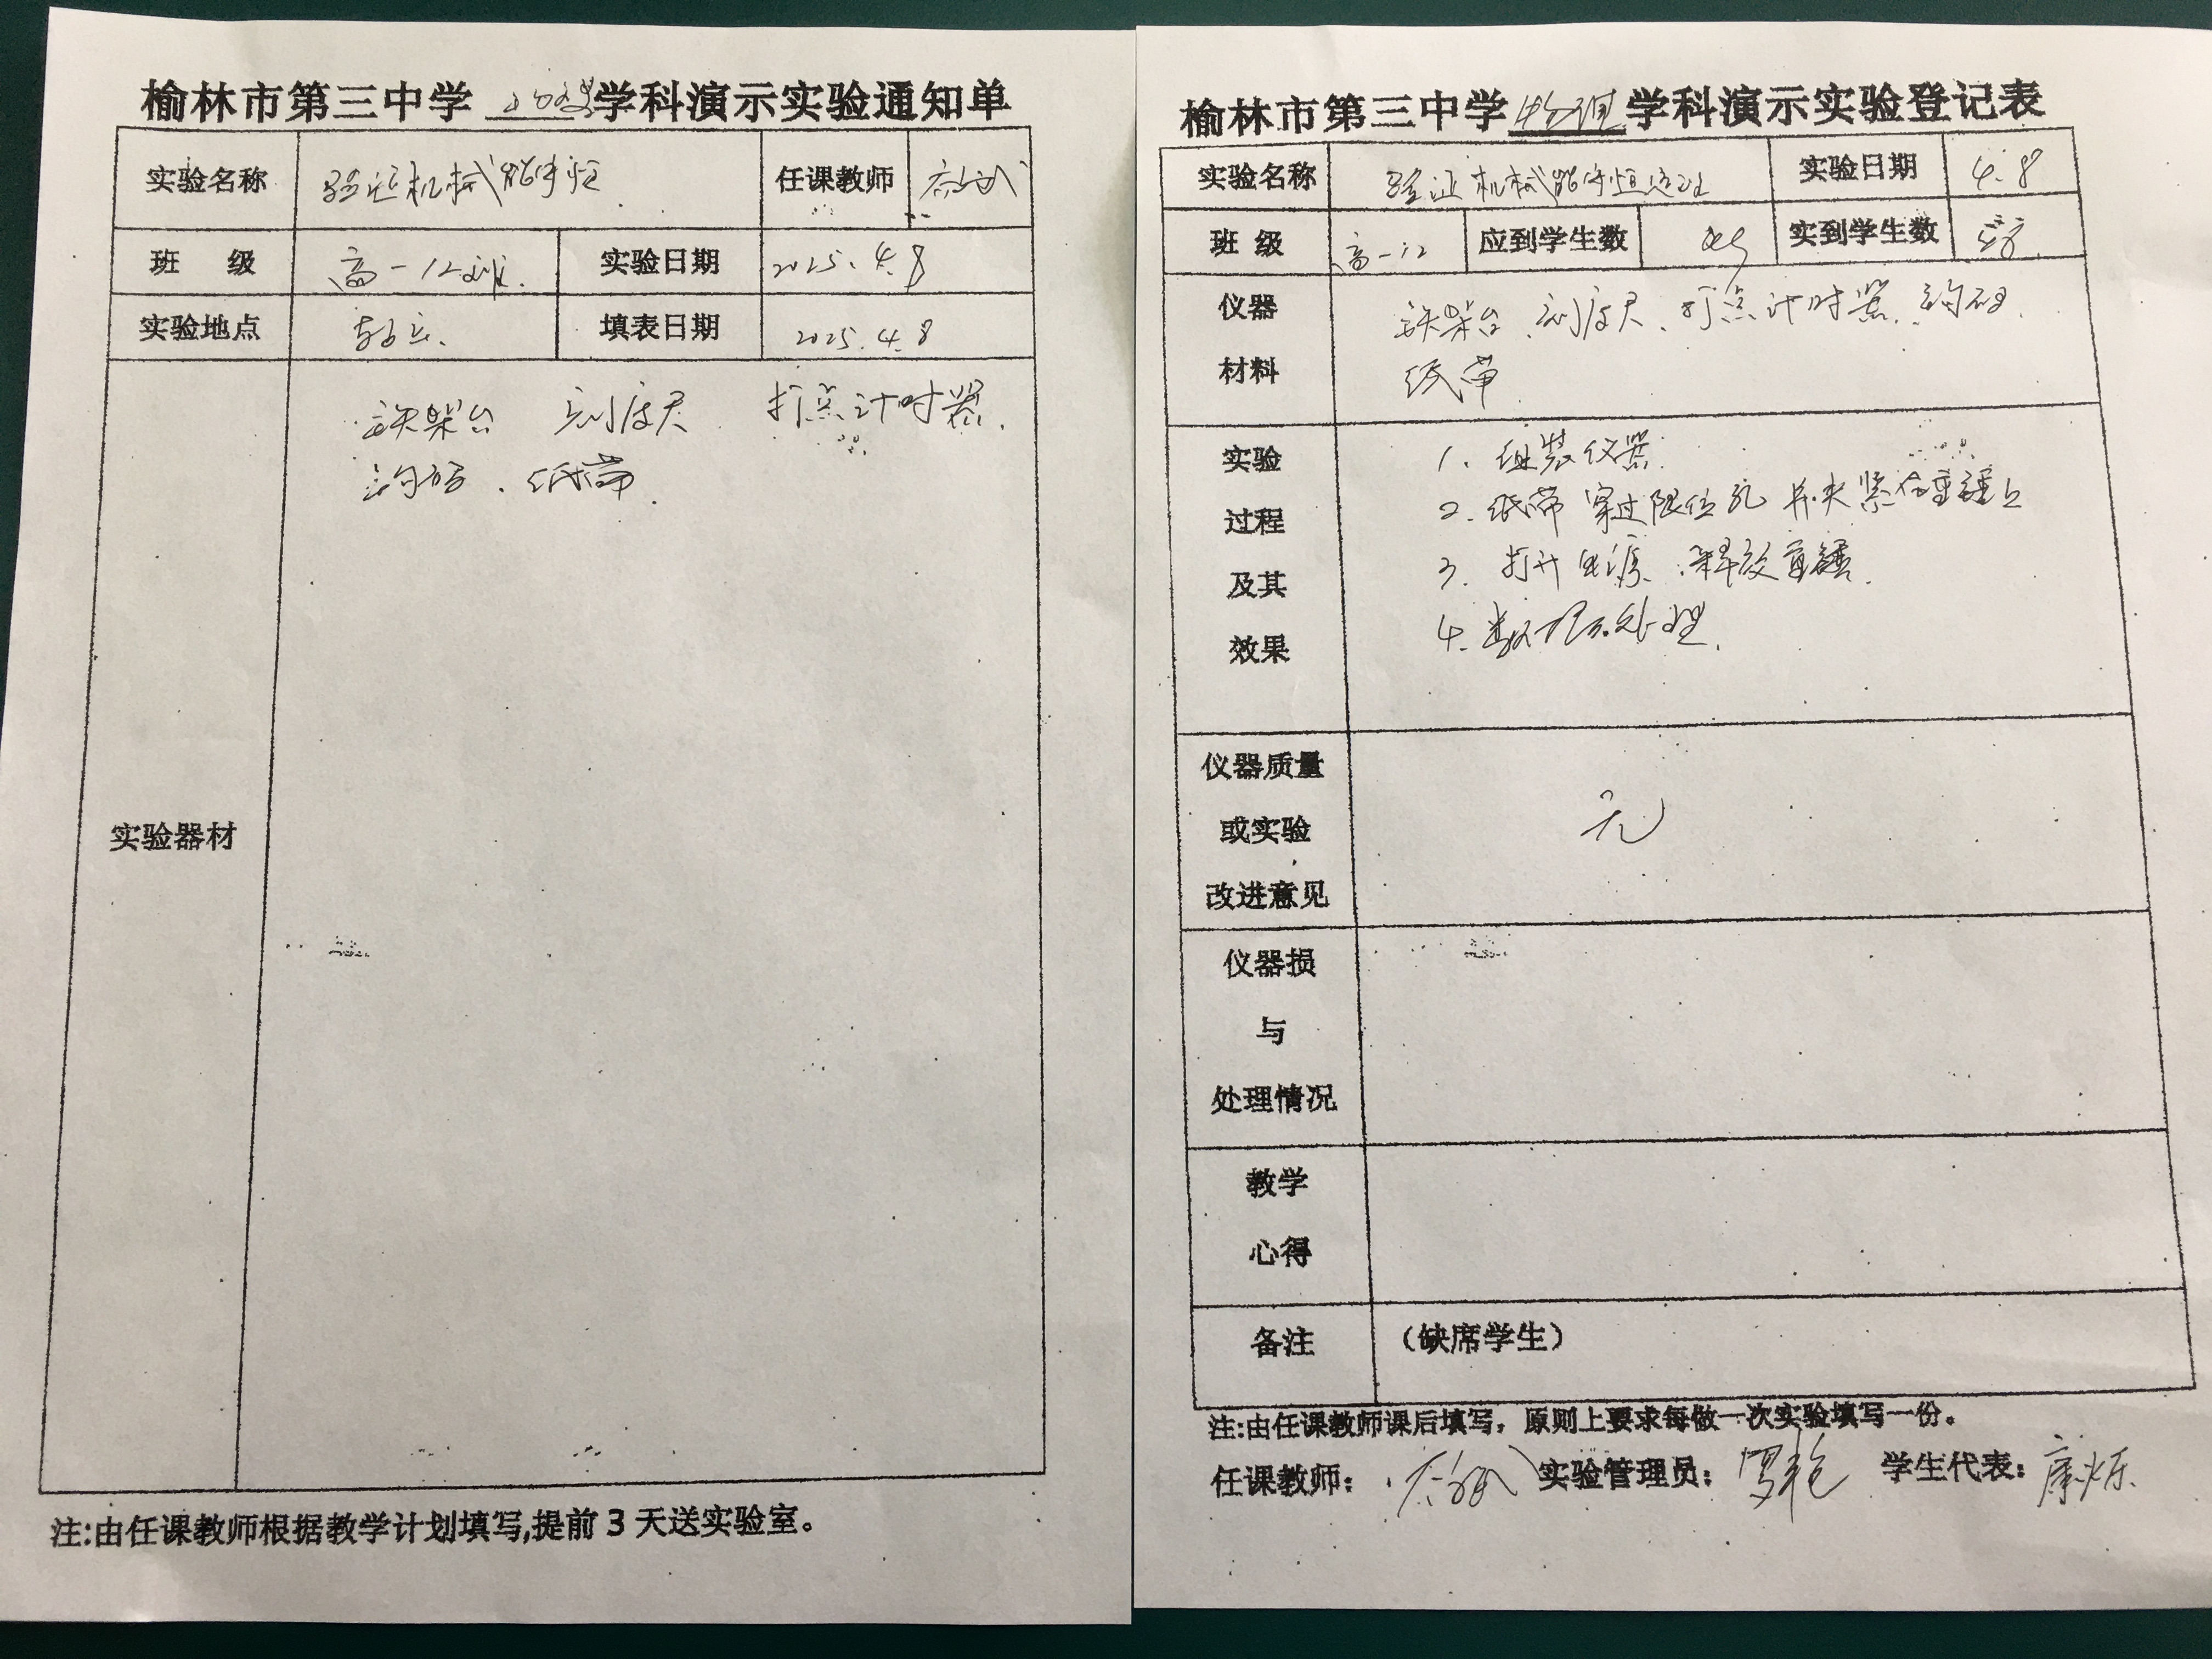 榆林市第三中学 物理 学科演示实验通知单
实验名称 验证机械能守恒 任课教师
班 级 高一12班. 实验日期 2025.4.8
实验地点 填表日期 2025.4.8
实验器材
铁架台 刻度尺 打点计时器.
钩码、纸带.
注:由任课教师根据教学计划填写,提前3天送实验室。
榆林市第三中学 物理 学科演示实验登记表
实验名称 验证机械能守恒定律 实验日期 4.8
班 级 高一12 应到学生数 实到学生数
仪器
材料
铁架台、刻度尺、打点计时器、钩码、
纸带.
实验
过程
及其
效果
1. 组装仪器.
2. 纸带穿过限位孔并夹紧在重锤上
3. 打开电源、释放重锤.
4. 数据处理.
仪器质量
或实验
改进意见
无
仪器损
与
处理情况
教学
心得
备注 （缺席学生）
注:由任课教师课后填写，原则上要求每做一次实验填写一份。
任课教师： 实验管理员： 罗艳 学生代表： 康烁